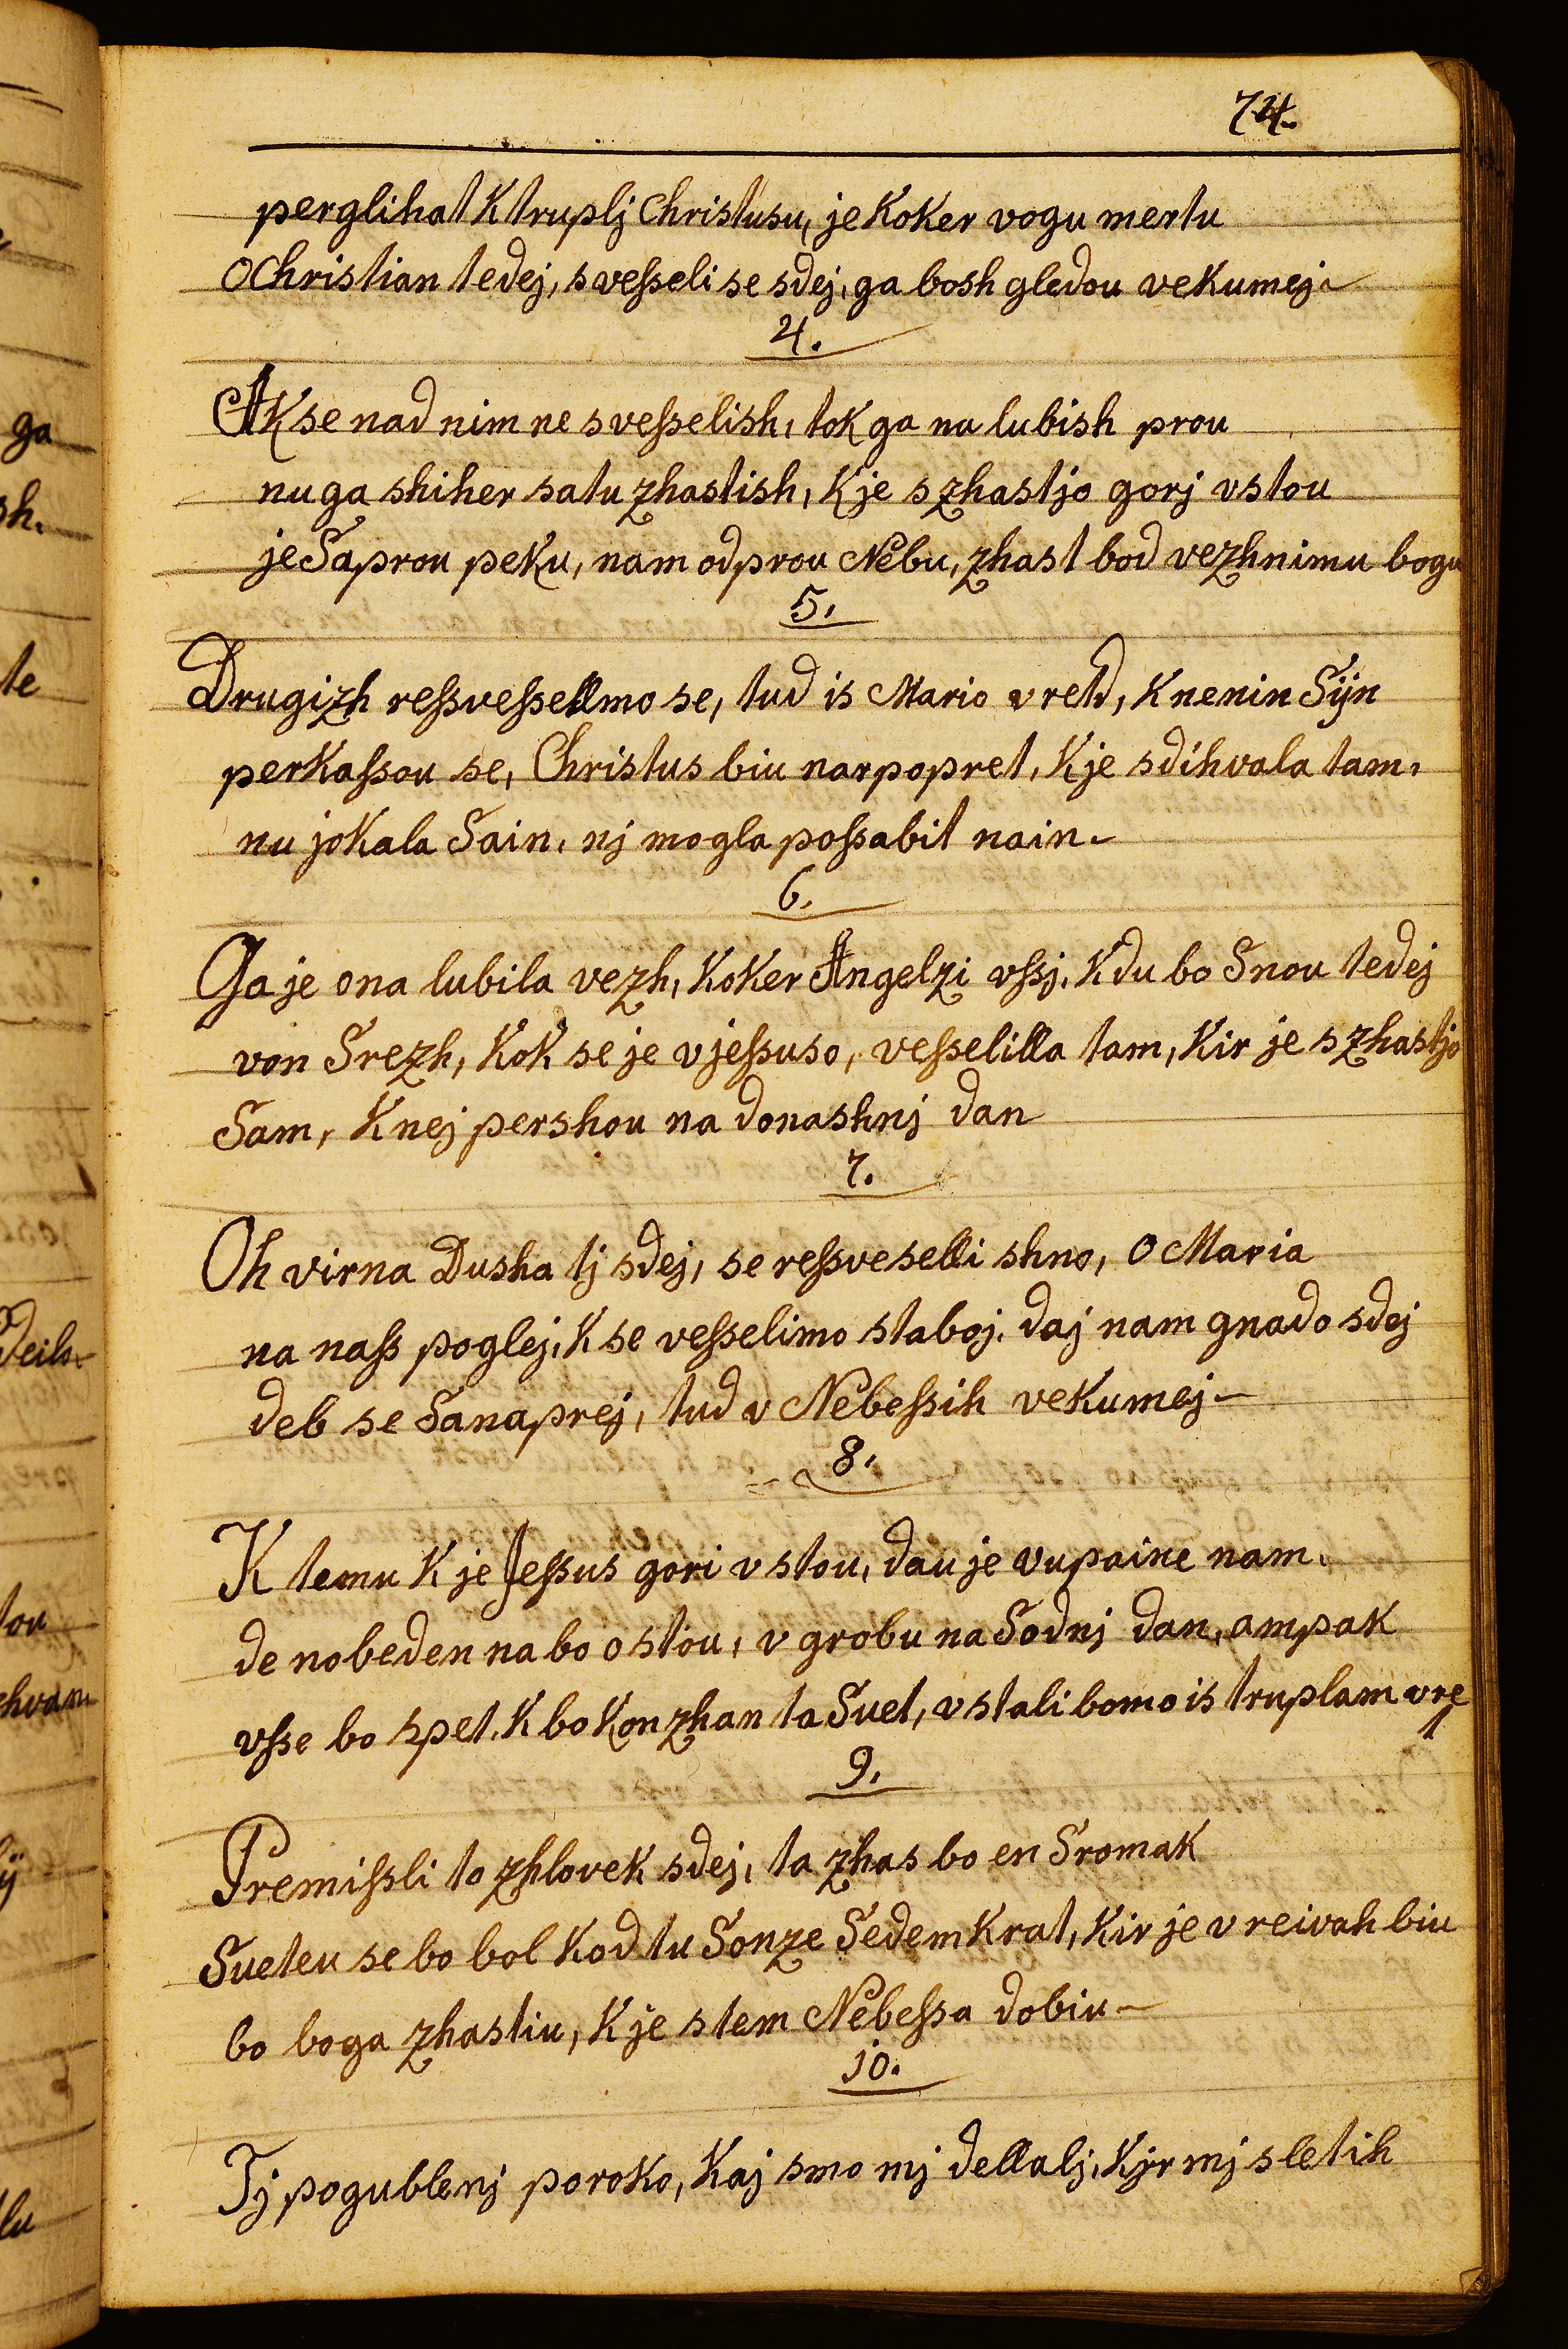 74.
perglihat K truplj Christusu, je Koker vogu mertu
O Christian tedej, svesseli se sdej, ga bosh gledou vekumej
4.
AK se nad nim ne svesselish, tok ga na lubish prou
nu ga shiher satu zhastish, K je s zhastjo gorj vstou
je Saprou peku, nam odprou Nebu, zhast bod vezhnimu bogu
5.
Drugizh ressvessellmo se, tud is Mario vretd, K nenin Sÿn
perkassou se, Christus biu narpopret, K je sdihvala tam,
nu jokala Sain, nj mogla possabit nain
6.
Ga je ona lubila vezh, Koker Angelzi vssj, K du bo Snou tedej
von Srezh, Kok se je v jessuso, vesselilla tam, Kir je s zhastjo
Sam, K nej pershou na donashnj dan
7.
Oh virna Dusha tj sdej, se ressveselli shno, O Maria
na nass poglej, K se vesselimo staboj, daj nam gnado sdej
deb se Sanaprej, tud v Nebessih vekumej
8.
K temu K je Jessus gori vstou, dau je vupaine nam,
de nobeden na bo ostou, v grobu na Sodnj dan, ampak
vsse bo spet, K bo Konzhan ta Suet, vstali bomo is truplam vre
t
9.
Premissli to zhlovek sdej, ta zhas bo en Sromak
Sueteu se bo bol Kod tu Sonze SedemKrat, Kir je v reivah biu
bo boga zhastiu, K je stem Nebessa dobiu
10.
Tj pogublenj poroko, Kaj smo mj dellalj, Kjr mj sletih
ga
sh.
te
Deilo
tou
ÿ
lu